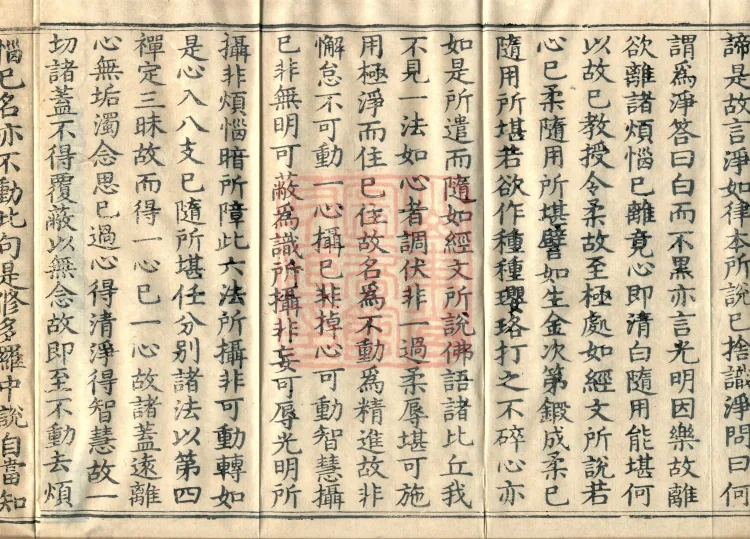 諦是故言淨如律本所說已捨識淨問曰何
謂為淨答曰白而不黑亦言光明因樂故離
欲離諸煩惱已離竟心即清白隨用能堪何
以故已教授令柔故至極處如經文所說若
心已柔隨用所堪譬如生金次第鍛成柔已
隨用所堪若欲作種種瓔珞打之不碎心亦
如是所遣而隨如經文所說佛語諸比丘我
不見一法如心者調伏非一過柔辱堪可施
用極淨而住已住故名為不動為精進故非
懈怠不可動一心攝已非掉心可動智慧攝
已非無明可蔽為識所攝非妄可辱光明所
攝非煩惱暗所障此六法所攝非可動轉如
是心入八支已隨所堪任分別諸法以第四
禪定三昧故而得一心已一心故諸蓋遠離
心無垢濁念思已過心得清淨得智慧故一
切諸蓋不得覆蔽以無念故即至不動去煩
惱已名亦不動此句是修多羅中說自當知